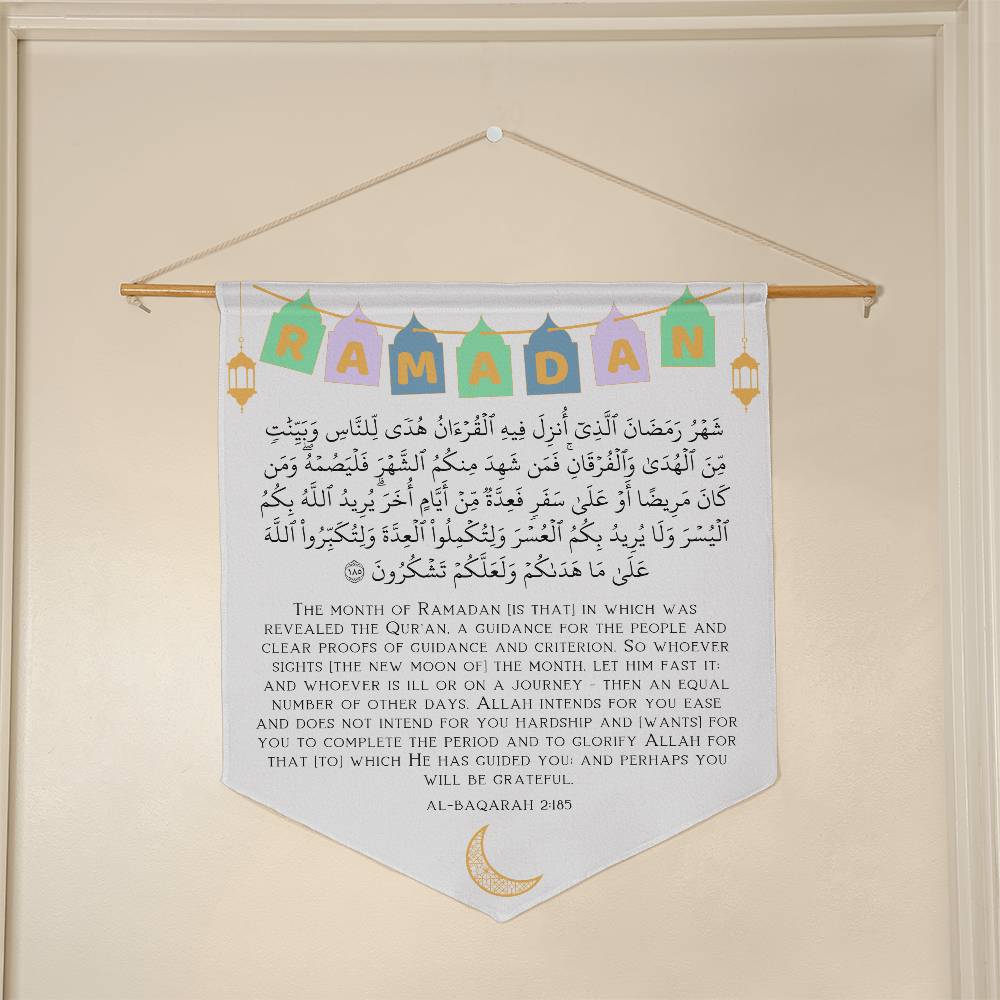 RAMADAN
شَهۡرُ رَمَضَانَ ٱلَّذِيٓ أُنزِلَ فِيهِ ٱلۡقُرۡءَانُ هُدٗى لِّلنَّاسِ وَبَيِّنَٰتٖ
مِّنَ ٱلۡهُدَىٰ وَٱلۡفُرۡقَانِۚ فَمَن شَهِدَ مِنكُمُ ٱلشَّهۡرَ فَلۡيَصُمۡهُۖ وَمَن
كَانَ مَرِيضًا أَوۡ عَلَىٰ سَفَرٖ فَعِدَّةٞ مِّنۡ أَيَّامٍ أُخَرَۗ يُرِيدُ ٱللَّهُ بِكُمُ
ٱلۡيُسۡرَ وَلَا يُرِيدُ بِكُمُ ٱلۡعُسۡرَ وَلِتُكۡمِلُواْ ٱلۡعِدَّةَ وَلِتُكَبِّرُواْ ٱللَّهَ
عَلَىٰ مَا هَدَىٰكُمۡ وَلَعَلَّكُمۡ تَشۡكُرُونَ ١٨٥
The month of Ramadan [is that] in which was
revealed the Qur'an, a guidance for the people and
clear proofs of guidance and criterion. So whoever
sights [the new moon of] the month, let him fast it;
and whoever is ill or on a journey - then an equal
number of other days. Allah intends for you ease
and does not intend for you hardship and [wants] for
you to complete the period and to glorify Allah for
that [to] which He has guided you; and perhaps you
will be grateful.
al-Baqarah 2:185